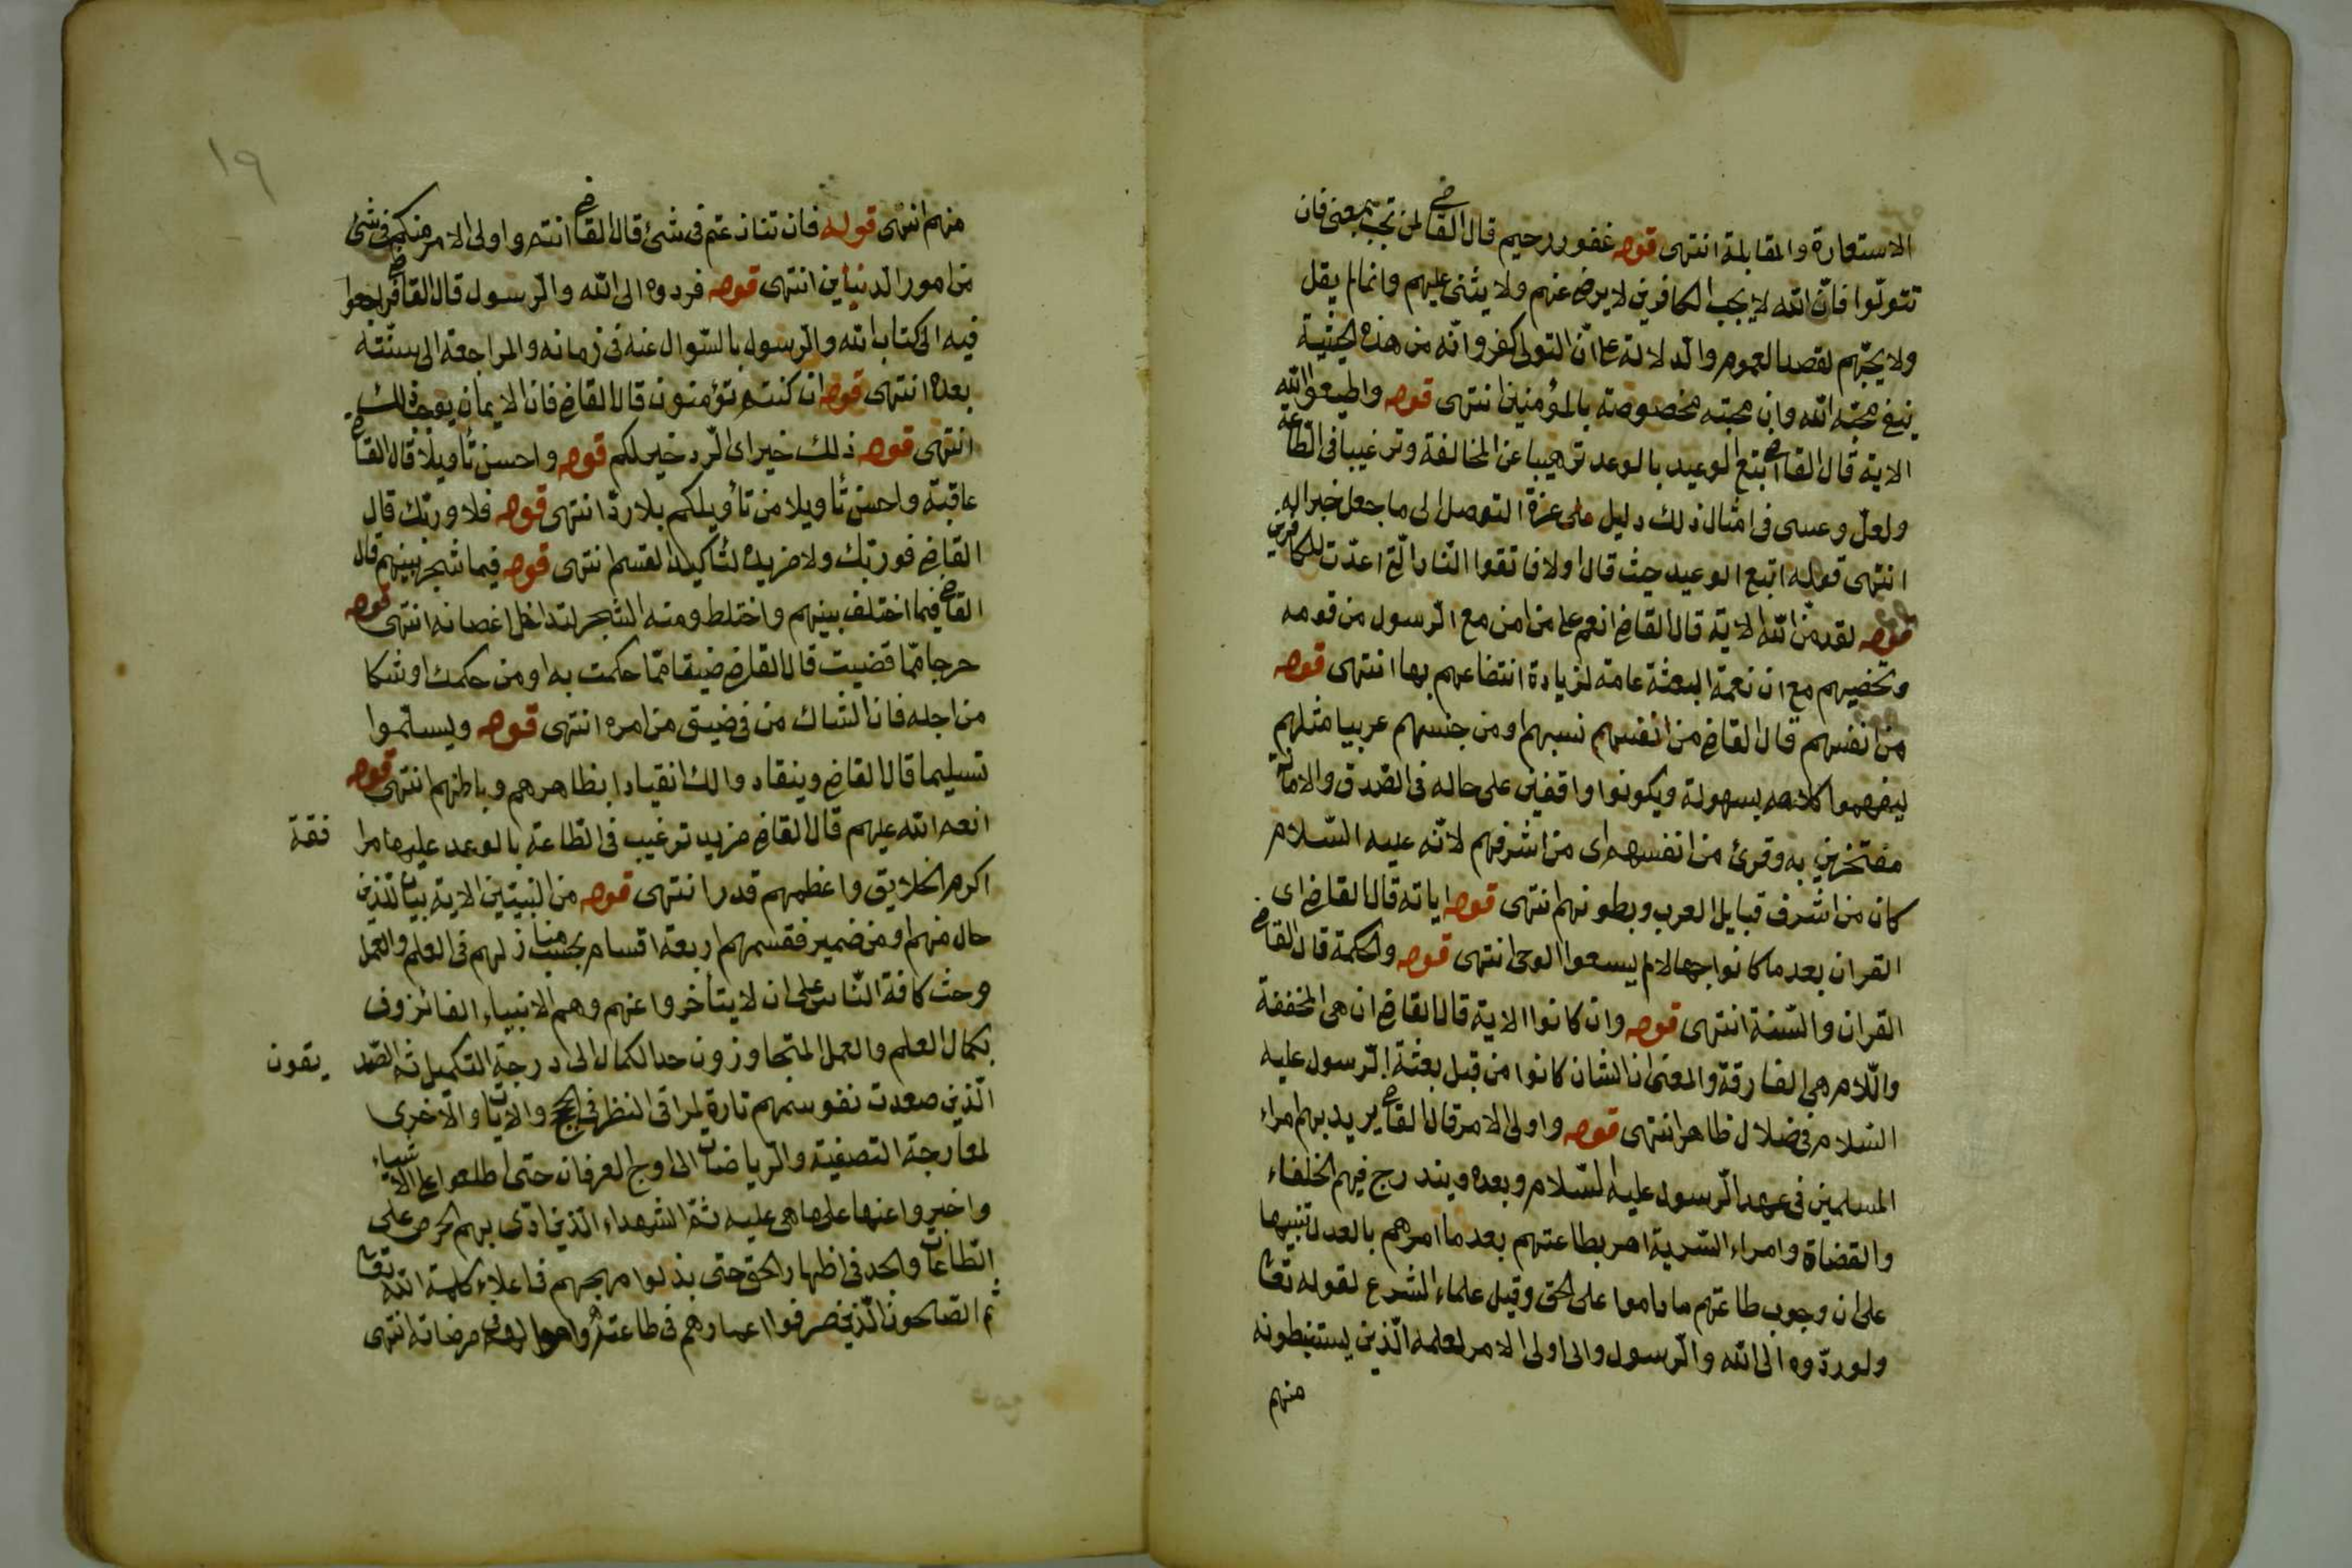 الاستعارة والمقابلة انتهى قوله غفور رحيم قال القاضى لمن تجبب بمعنى فان
تتولّوا فانّ الله لا يحب الكافرين لا يرضى عنهم ولا يثنى عليهم وانما لم يقل
ولا يحبّهم لقصد العموم والدلالة على انّ التولى كفر وانّه من هذه الحيثية
ينفى محبّة الله وان محبته مخصوصة بالمؤمنين انتهى قوله واطيعوا الله
الاية قال القاضى اتبع الوعيد بالوعد ترهيبا عن المخالفة وترغيبا فى الطاعة
ولعلّ وعسى فى امثال ذلك دليل على عزة التوصل الى ما جعل خبرا له
انتهى قوله اتبع الوعيد حيث قال اولا فاتقوا النار الّتى اعدّت للكافرين
قوله لقد منّ الله الاية قال القاضى انعم على من امن مع الرّسول من قومه
وتخصيهم مع ان نعمة البعثة عامة لزيادة انتفاعهم بها انتهى قوله
من انفسهم قال القاضى من انفسهم نسبهم او من جنسهم عربيا مثلهم
ليفهموا كلامه بسهولة ويكونوا واقفين على حاله فى الصّدق والامانة
مفتخرين به وقرئ من انفسهم اى من اشرفهم لانّه عليه السّلام
كان من اشرف قبايل العرب وبطونهم انتهى قوله اياته قال القاضى اى
القران بعد ما كانوا جهالا لم يسعوا الوحى انتهى قوله والحكمة قال القاضى
القران والسّنة انتهى قوله وان كانوا الاية قال القاضى ان هى المخففة
واللّام هى الفارقة والمعنى ان الشان كانوا من قبل بعثة الرّسول عليه
السّلام فى ضلال ظاهر انتهى قوله واولى الامر قال القاضى يريد بهم امراء
المسلمين فى عهد الرّسول عليه السّلام وبعده ويندرج فيهم الخلفاء
والقضاة وامراء السّرية امر بطاعتهم بعد ما امرهم بالعدل تنبيها
على ان وجوب طاعتهم ما داموا على الحق وقيل علماء الشرع لقوله تعا
ولو ردّوه الى الله والرّسول والى اولى الامر لعلمه الّذين يستنبطونه
منهم
١٩
منهم انتهى قوله فان تنازعتم فى شئ قال القاضى انتم واولى الامر منكم فى شئ
من امور الدنيا ين انتهى قوله فردوه الى الله والرّسول قال القاضى فراجعوا
فيه الى كتاب الله والرّسول بالسّوال عنه فى زمانه والمراجعة الى سنّته
بعده انتهى قوله ان كنتم تؤمنون قال القاضى فان الايمان يوجب ذلك
انتهى قوله ذلك خير اى الرّد خير لكم قوله واحسن تأويلا قال القاضى
عاقبة واحسن تأويلا من تأويلكم بلا ردّ انتهى قوله فلا وربّك قال
القاضى فوربّك ولا مزيدة لتاكيد القسم انتهى قوله فيما شجر بينهم قال
القاضى فيما اختلف بينهم واختلط ومنه الشجر لتداخل اغصانه انتهى قوله
حرجا ممّا قضيت قال القاضى ضيقا ممّا حكمت به او من حكمك او شكا
من اجله فان الشاك من فى ضيق من امره انتهى قوله ويسلّموا
تسليما قال القاضى وينقادوا لك انقيادا بظاهرهم وباطنهم انتهى قوله
انعم الله عليهم قال القاضى مزيد ترغيب فى الطاعة بالوعد عليها مرا فقة
اكرم الخلايق واعظمهم قدرا انتهى قوله من النبيّين الاية بيان للذين
حال منهم او من ضمير فقسمهم اربعة اقسام بحسب منازلهم فى العلم والعمل
وحث كافة النّاس على ان لا يتأخروا عنهم وهم الانبياء الفائزون
بكمال العلم والعمل المتجاوزون حد الكمال الى درجة التكميل ثم الصّد يقون
الّذين صعدت نفوسهم تارة لمراقى النظر فى الحجج والايات والاخرى
لمعارجة التصفية والرّياضات الى اوج العرفان حتى اطلعوا على الاشياء
واخبروا عنها على ما هى عليه ثمّ الشهداء الّذين ادّى بهم الحرص على
الطاعات والجد فى اظهار الحق حتى بذلوا مهجهم فى اعلاء كلمة الله تعا
ثم الصّالحون الّذين صرفوا اعمارهم فى طاعته واموالهم فى مرضاته انتهى